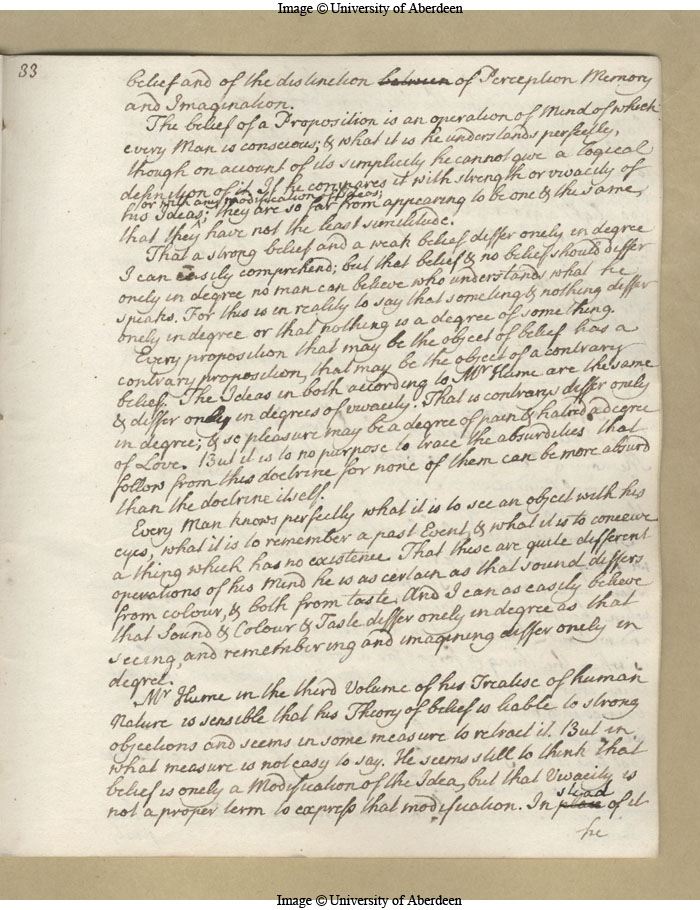 Image © University of Aberdeen
33
belief and of the distinction between of Perception Memory
and Imagination.
The belief of a Proposition is an operation of Mind of which
every Man is conscious; & what it is he understands perfectly,
though on account of its simplicity he cannot give a Logical
definition of it. If he compares it with strength or vivacity of
or with any modification of Ideas;
his Ideas; they are so far from appearing to be one & the same,
that they have not the least similitude.
That a strong belief and a weak belief differ onely in degree
I can easily comprehend; but that belief & no belief should differ
onely in degree no man can believe who understands what he
speaks. For this is in reality to say that something & nothing differ
onely in degree or that nothing is a degree of something.
Every proposition that may be the object of belief has a
contrary proposition, that may be the object of a contrary
belief. The Ideas in both according to Mr Hume are the same
& differ onely in degrees of vivacity. That is contrarys differ onely
in degree; & so pleasure may be a degree of pain & hatred a degree
of Love. But it is to no purpose to trace the absurdities that
follow from this doctrine for none of them can be more absurd
than the doctrine itself.
Every Man knows perfectly what it is to see an object with his
eyes, what it is to remember a past Event, & what it is to conceive
a thing which has no existence. That these are quite different
operations of his Mind he is as certain as that sound differs
from colour, & both from taste. And I can as easily believe
that Sound & Colour & Taste differ onely in degree as that
seeing, and remembering and imagining differ onely in
degree.
Mr Hume in the third Volume of his Treatise of human
Nature is sensible that his Theory of belief is liable to strong
objections and seems in some measure to retract it. But in
what measure is not easy to say. He seems still to think that
belief is onely a Modification of the Idea, but that Vivacity is
stead
not a proper term to express that modification. In place of it
he
Image © University of Aberdeen